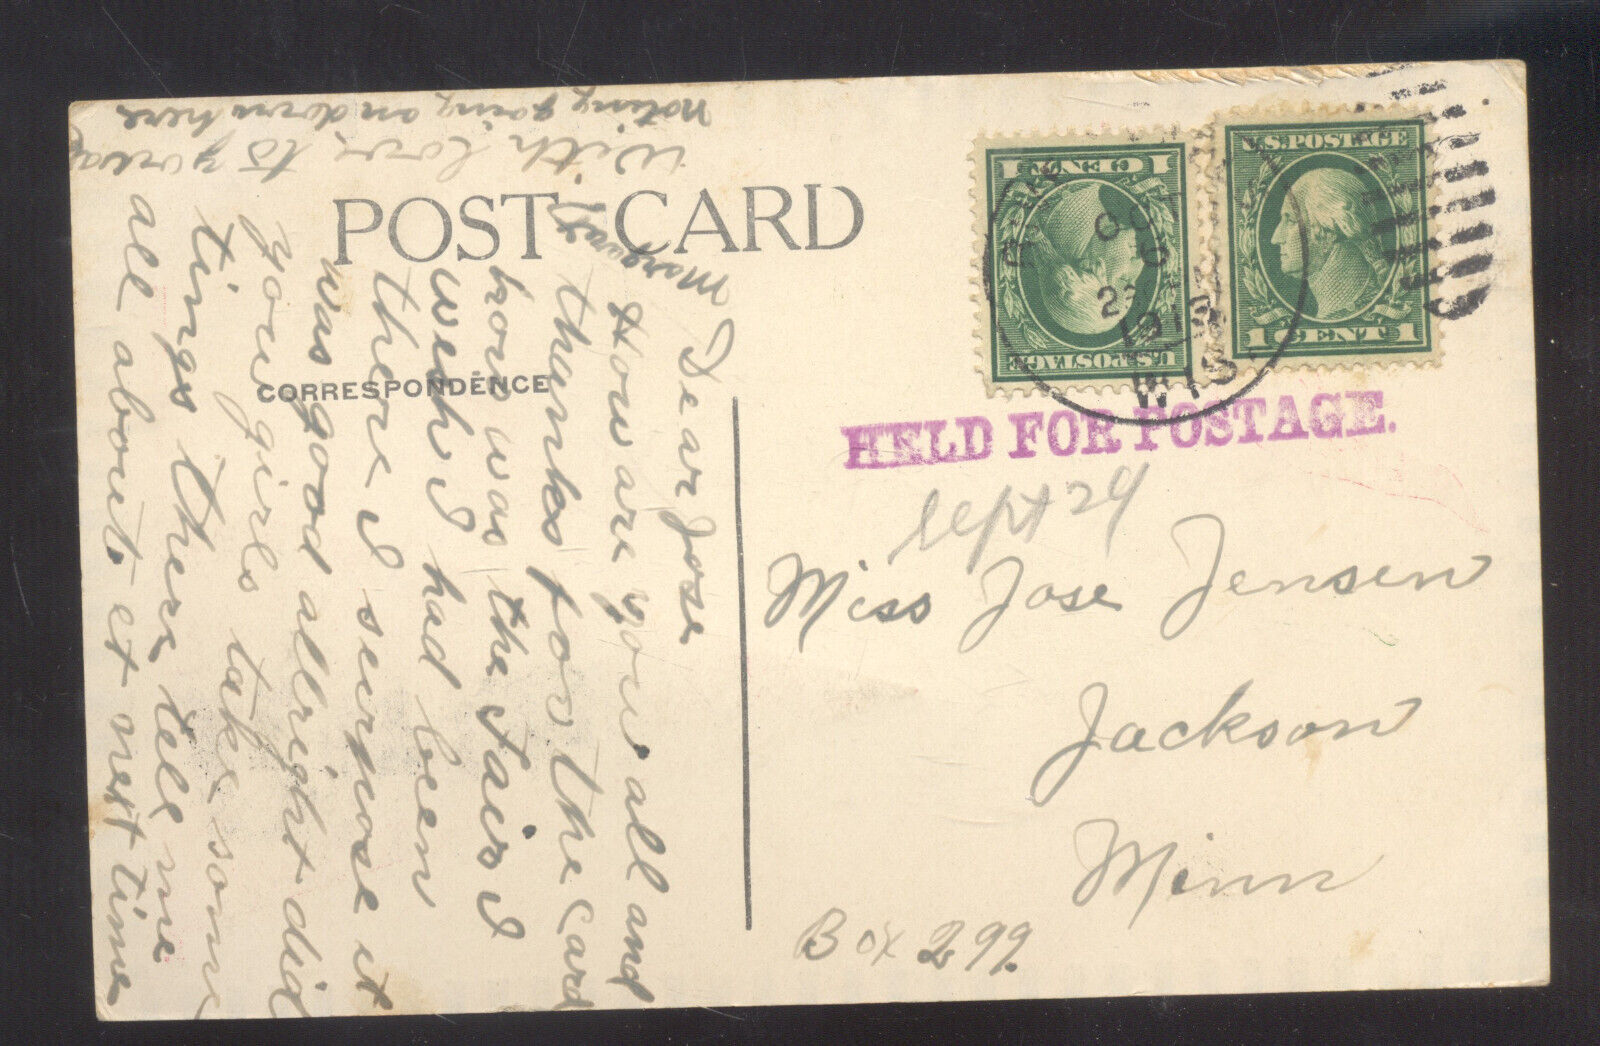 POST CARD
CORRESPONDENCE
Dear Jose
How are you all and
thanks for the card
how was the Fair I
wish I had been
there I surpose it
was good allright did
you girls take some
tings there tell me
all about it next time
With love to you all
noting going on down here
U.S. POSTAGE
1 CENT 1
U.S. POSTAGE
1 CENT 1
OCT
WIS
HELD FOR POSTAGE.
Sept 29
Miss Jose Jensen
Jackson
Minn
Box 299.